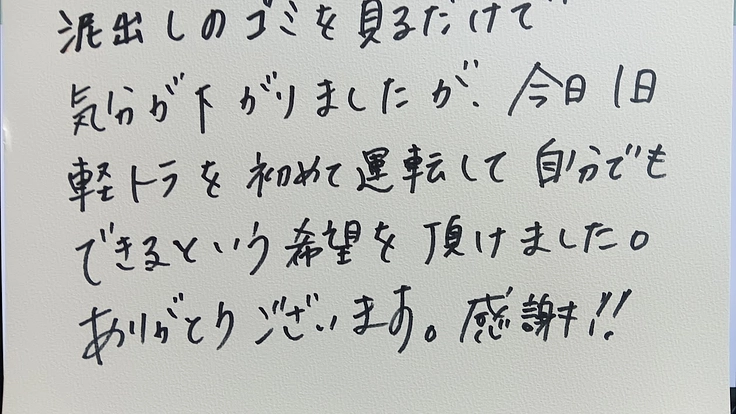 泥出しのゴミを見るだけで
気分が下がりましたが、今日1日
軽トラを初めて運転して自分でも
できるという希望を頂けました。
ありがとうございます。感謝です!!